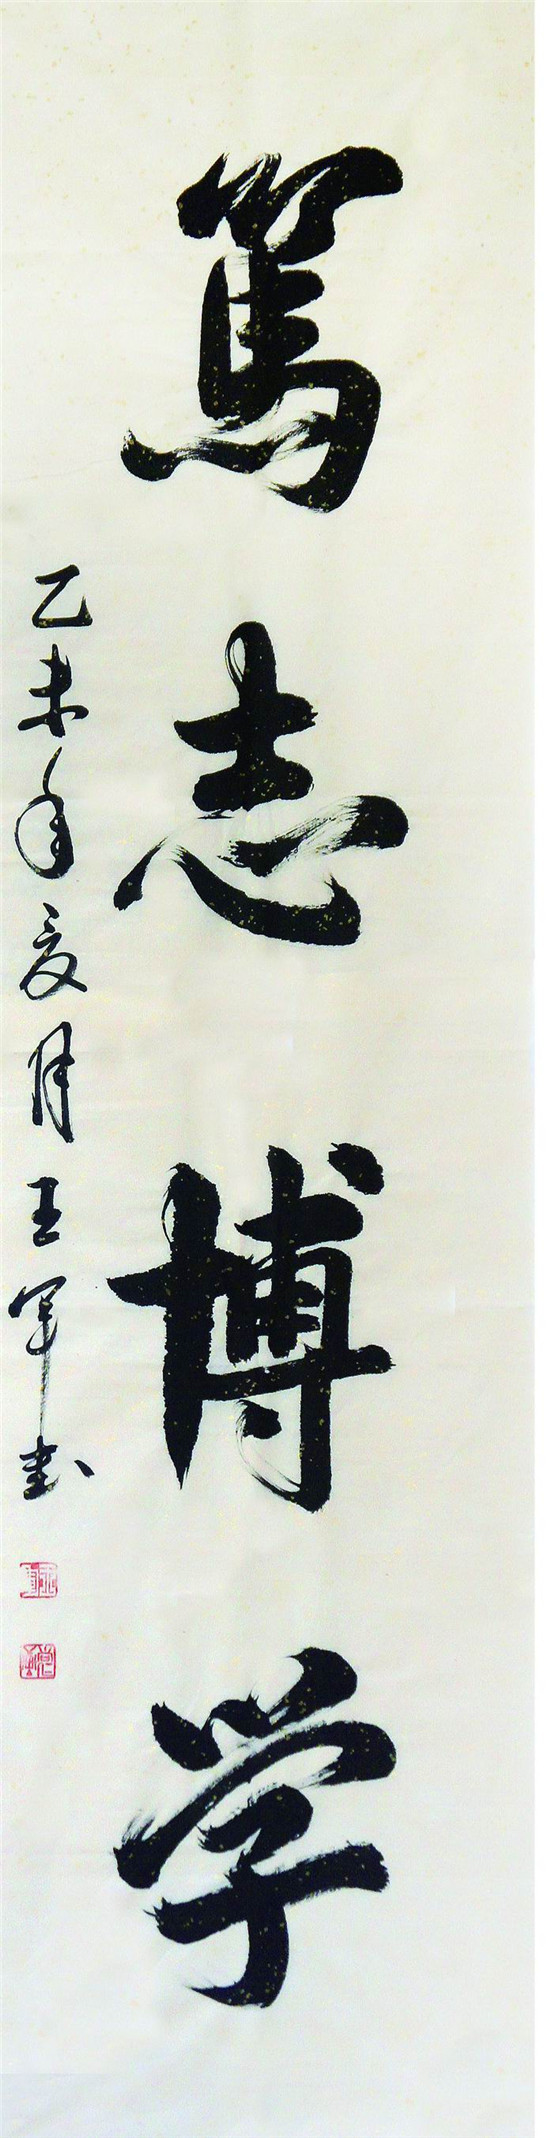 笃志博学
乙未年夏月王军书